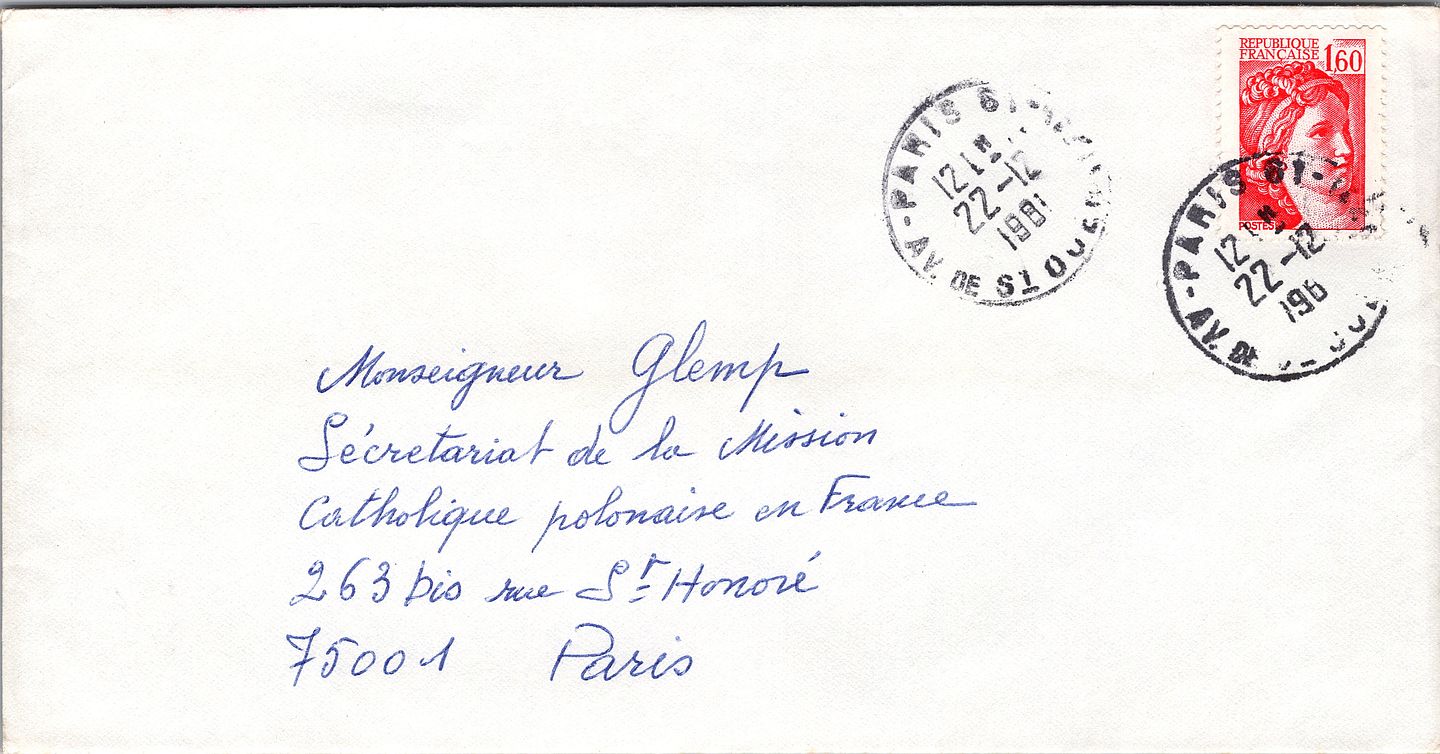 REPUBLIQUE
FRANÇAISE 1,60
POSTES
PARIS
12 H
22-12
1981
AV. DE St OUEN
PARIS
12 H
22-12
198
AV. DE
Monseigneur Glemp
Sécretariat de la Mission
Catholique polonaise en France
263 bis rue St Honoré
75001 Paris